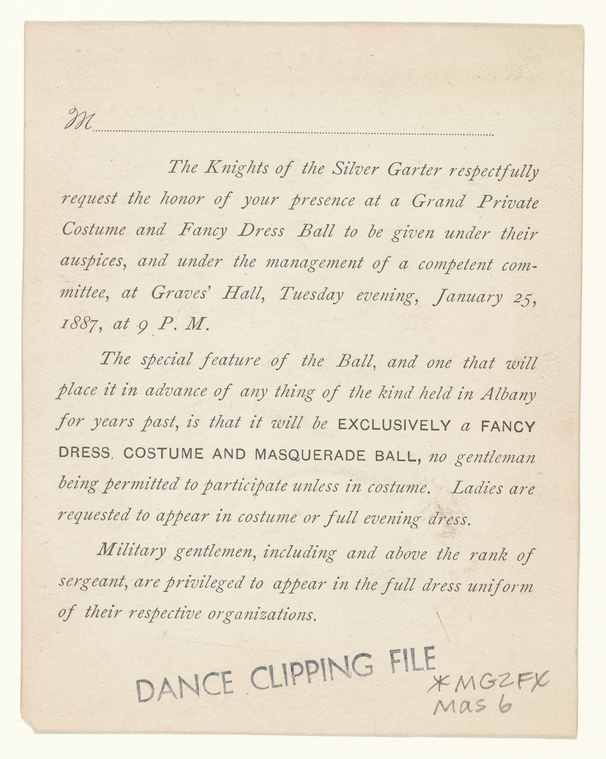 M
The Knights of the Silver Garter respectfully
request the honor of your presence at a Grand Private
Costume and Fancy Dress Ball to be given under their
auspices, and under the management of a competent com-
mittee, at Graves' Hall, Tuesday evening, January 25,
1887, at 9 P. M.
The special feature of the Ball, and one that will
place it in advance of any thing of the kind held in Albany
for years past, is that it will be EXCLUSIVELY a FANCY
DRESS, COSTUME AND MASQUERADE BALL, no gentleman
being permitted to participate unless in costume. Ladies are
requested to appear in costume or full evening dress.
Military gentlemen, including and above the rank of
sergeant, are privileged to appear in the full dress uniform
of their respective organizations.
DANCE CLIPPING FILE
*MGZFX
Mas 6